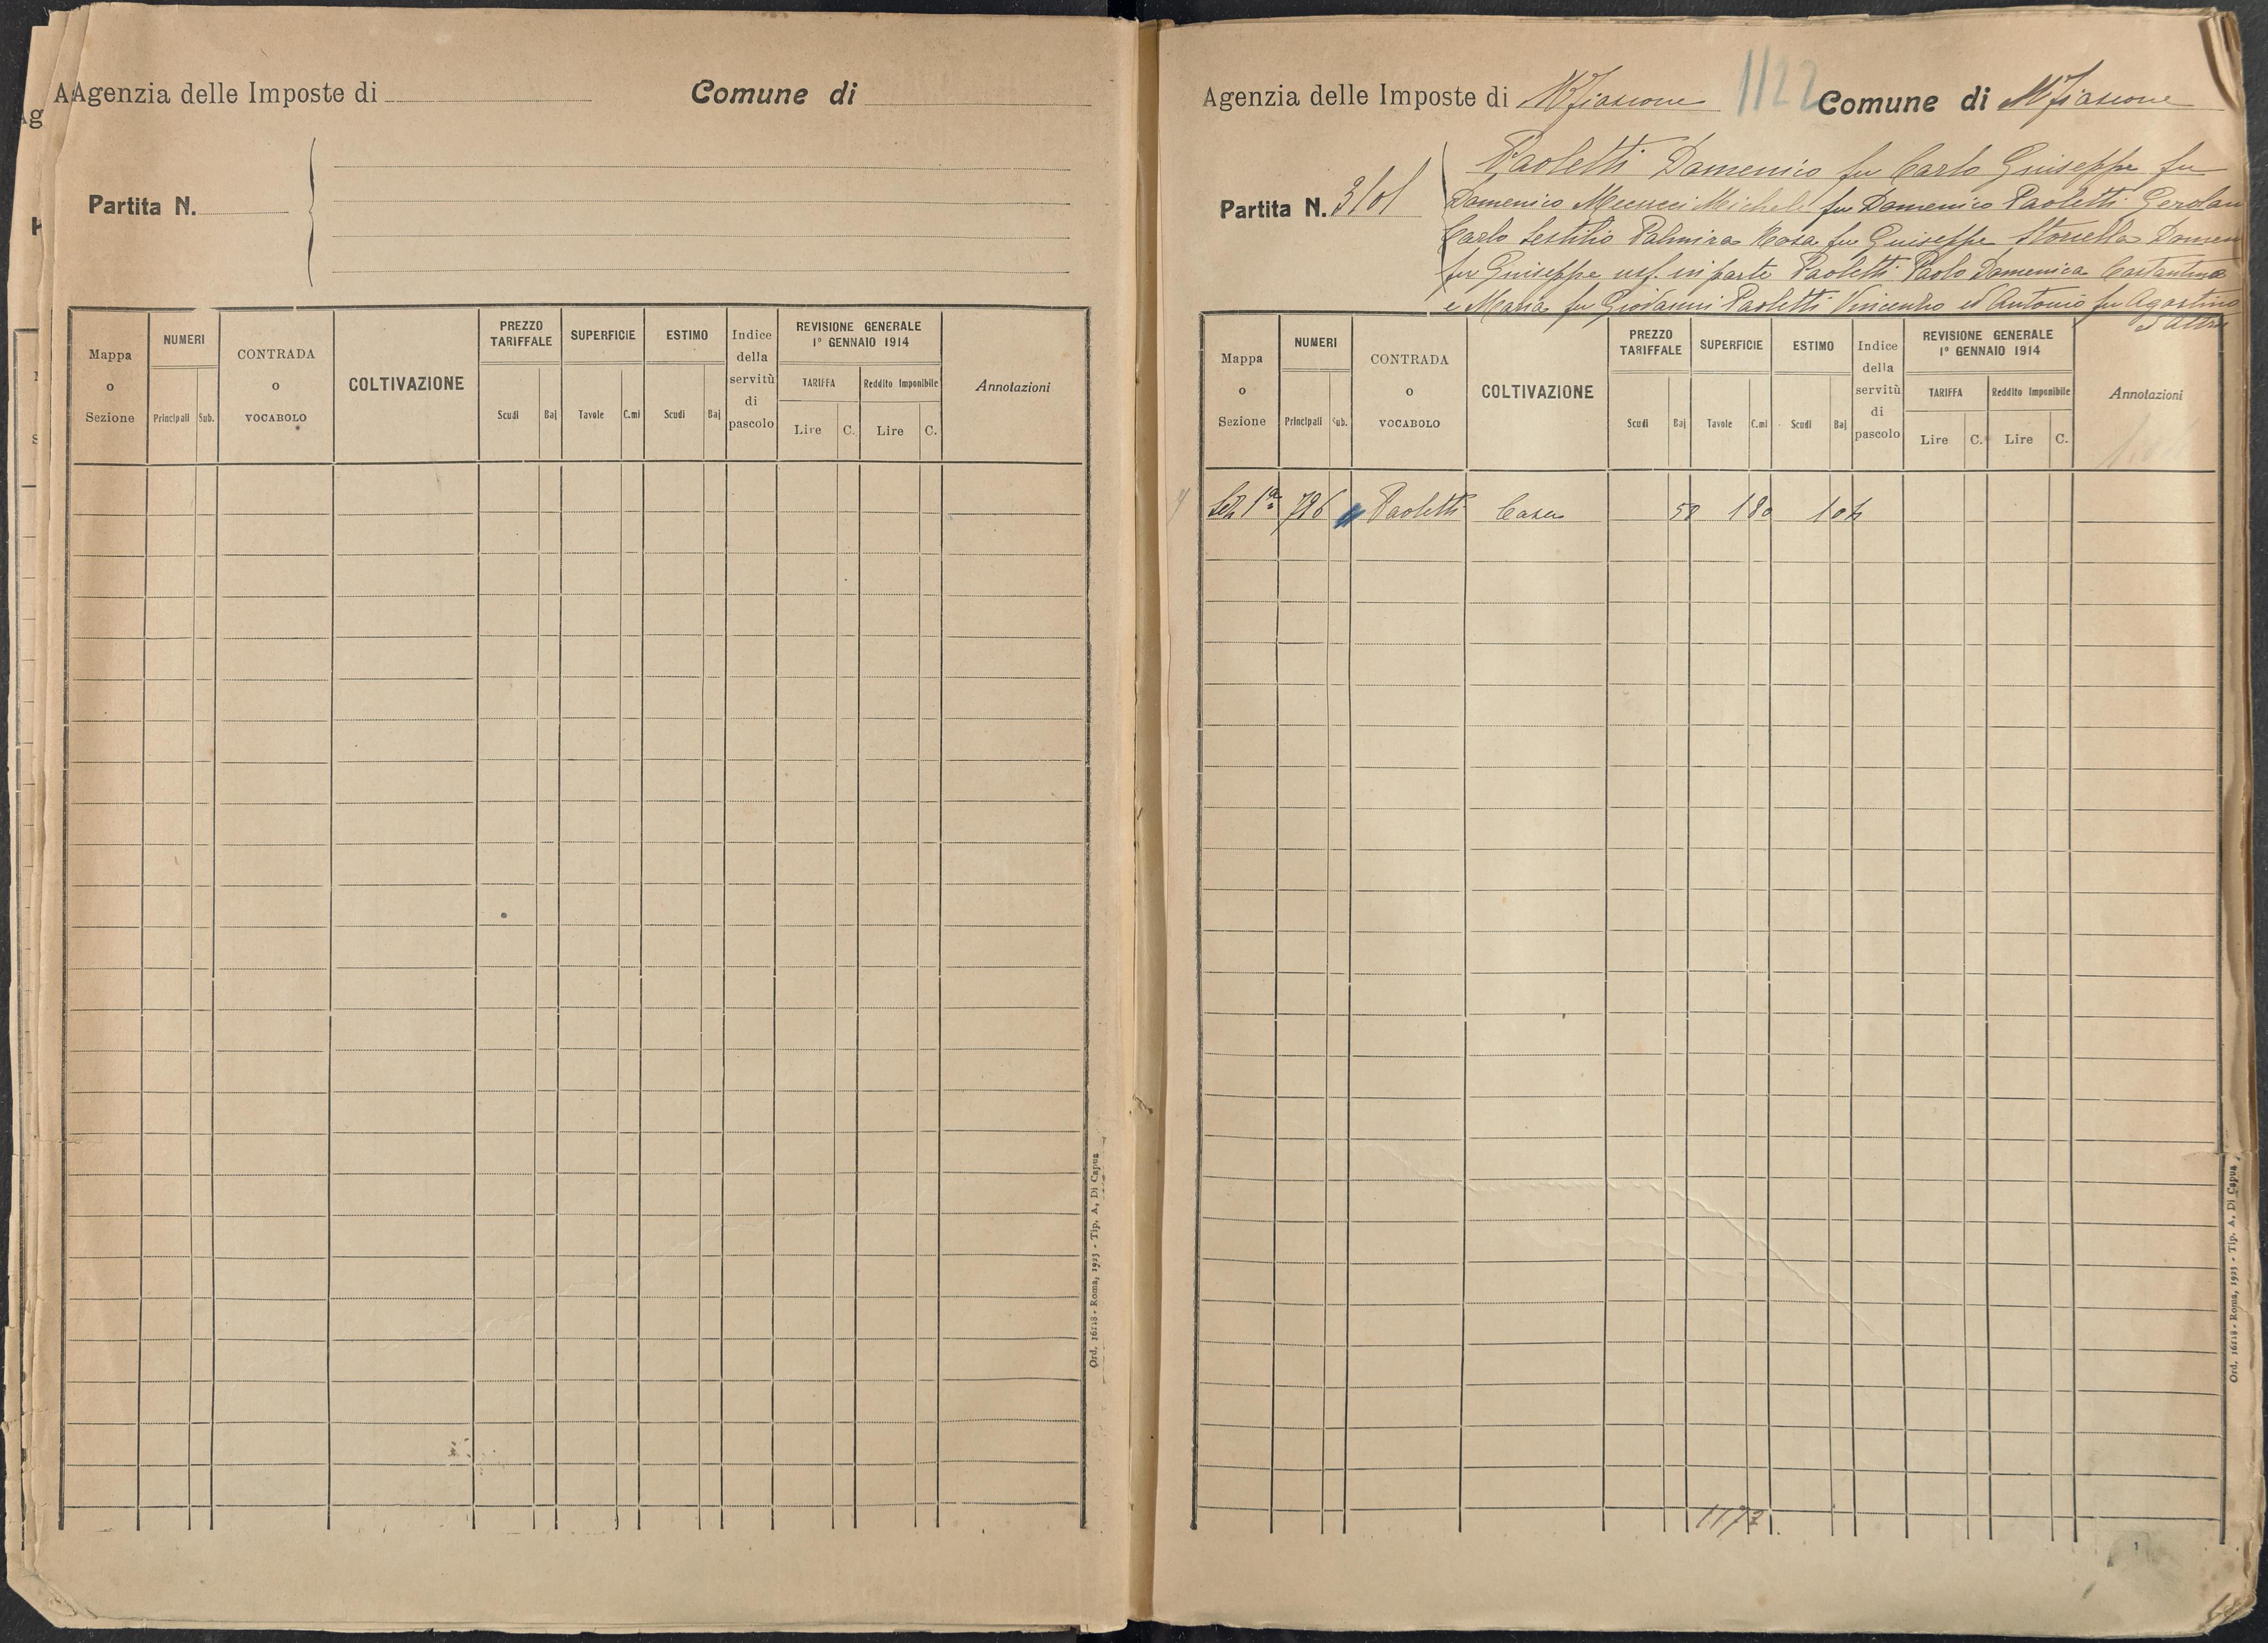 Agenzia delle Imposte di
Comune di
Partita N.
Mappa o Sezione
NUMERI
Principali Sub.
CONTRADA o VOCABOLO
COLTIVAZIONE
PREZZO TARIFFALE
Scudi Baj
SUPERFICIE
Tavole C.mi
ESTIMO
Scudi Baj
Indice della servitù di pascolo
REVISIONE GENERALE
1° GENNAIO 1914
TARIFFA Reddito Imponibile
Lire C. Lire C.
Annotazioni
Ord. 16118 - Roma, 1923 - Tip. A. Di Capua
Agenzia delle Imposte di M Fiascone 1122 Comune di M Fiascone
Partita N. 3101
Paoletti Domenico fu Carlo Giuseppe fu
Domenico Mecucci Michele fu Domenico Paoletti Gerolam
Carlo Sestilio Palmira Rosa fu Giuseppe Storcella Domen
fu Giuseppe usf. in parte Paoletti Paolo Domenica Costantino
e Maria fu Giovanni Paoletti Vincenzo ed Antonio fu Agostino
Mappa o Sezione
NUMERI
Principali Sub.
CONTRADA o VOCABOLO
COLTIVAZIONE
PREZZO TARIFFALE
Scudi Baj
SUPERFICIE
Tavole C.mi
ESTIMO
Scudi Baj
Indice della servitù di pascolo
REVISIONE GENERALE
1° GENNAIO 1914
TARIFFA Reddito Imponibile
Lire C. Lire C.
Annotazioni
Sez 1ª 796 Paoletti Casa 58 180 104
1173
Ord. 16118 - Roma, 1923 - Tip. A. Di Capua